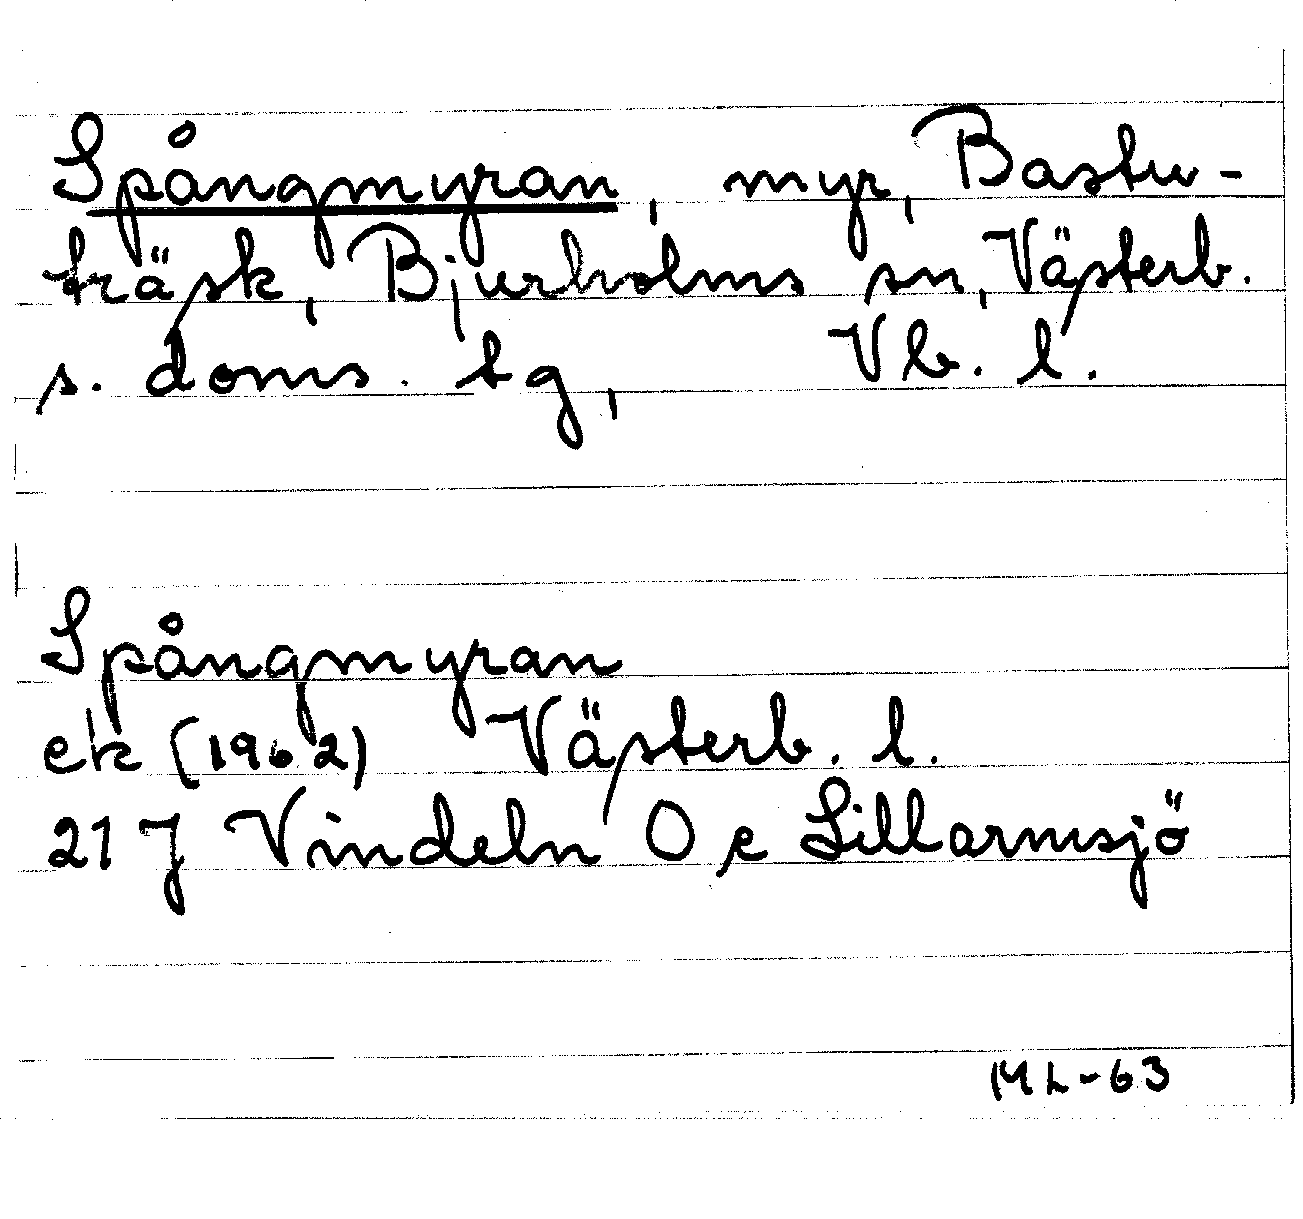 Spångmyran, myr, Bastu-
träsk, Bjurholms sn, Västerb.
s. doms. tg, Vb. l.
Spångmyran
ek (1962) Västerb. l.
21 J Vindeln 0 e Lillarmsjö
ML-63